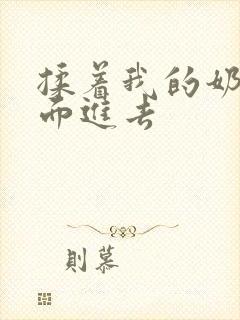 揉着我的奶
而進去
則慕